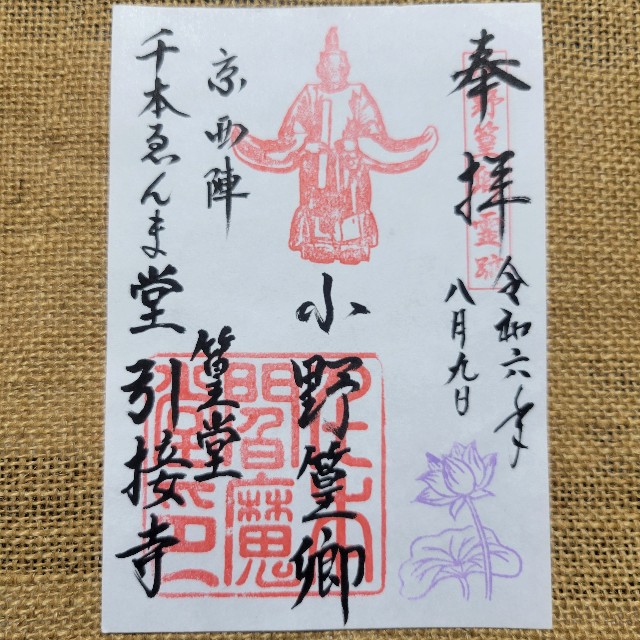 奉拝
令和六年
八月九日
小野篁卿
篁堂
京西陣
千本ゑんま堂
引接寺
閻魔